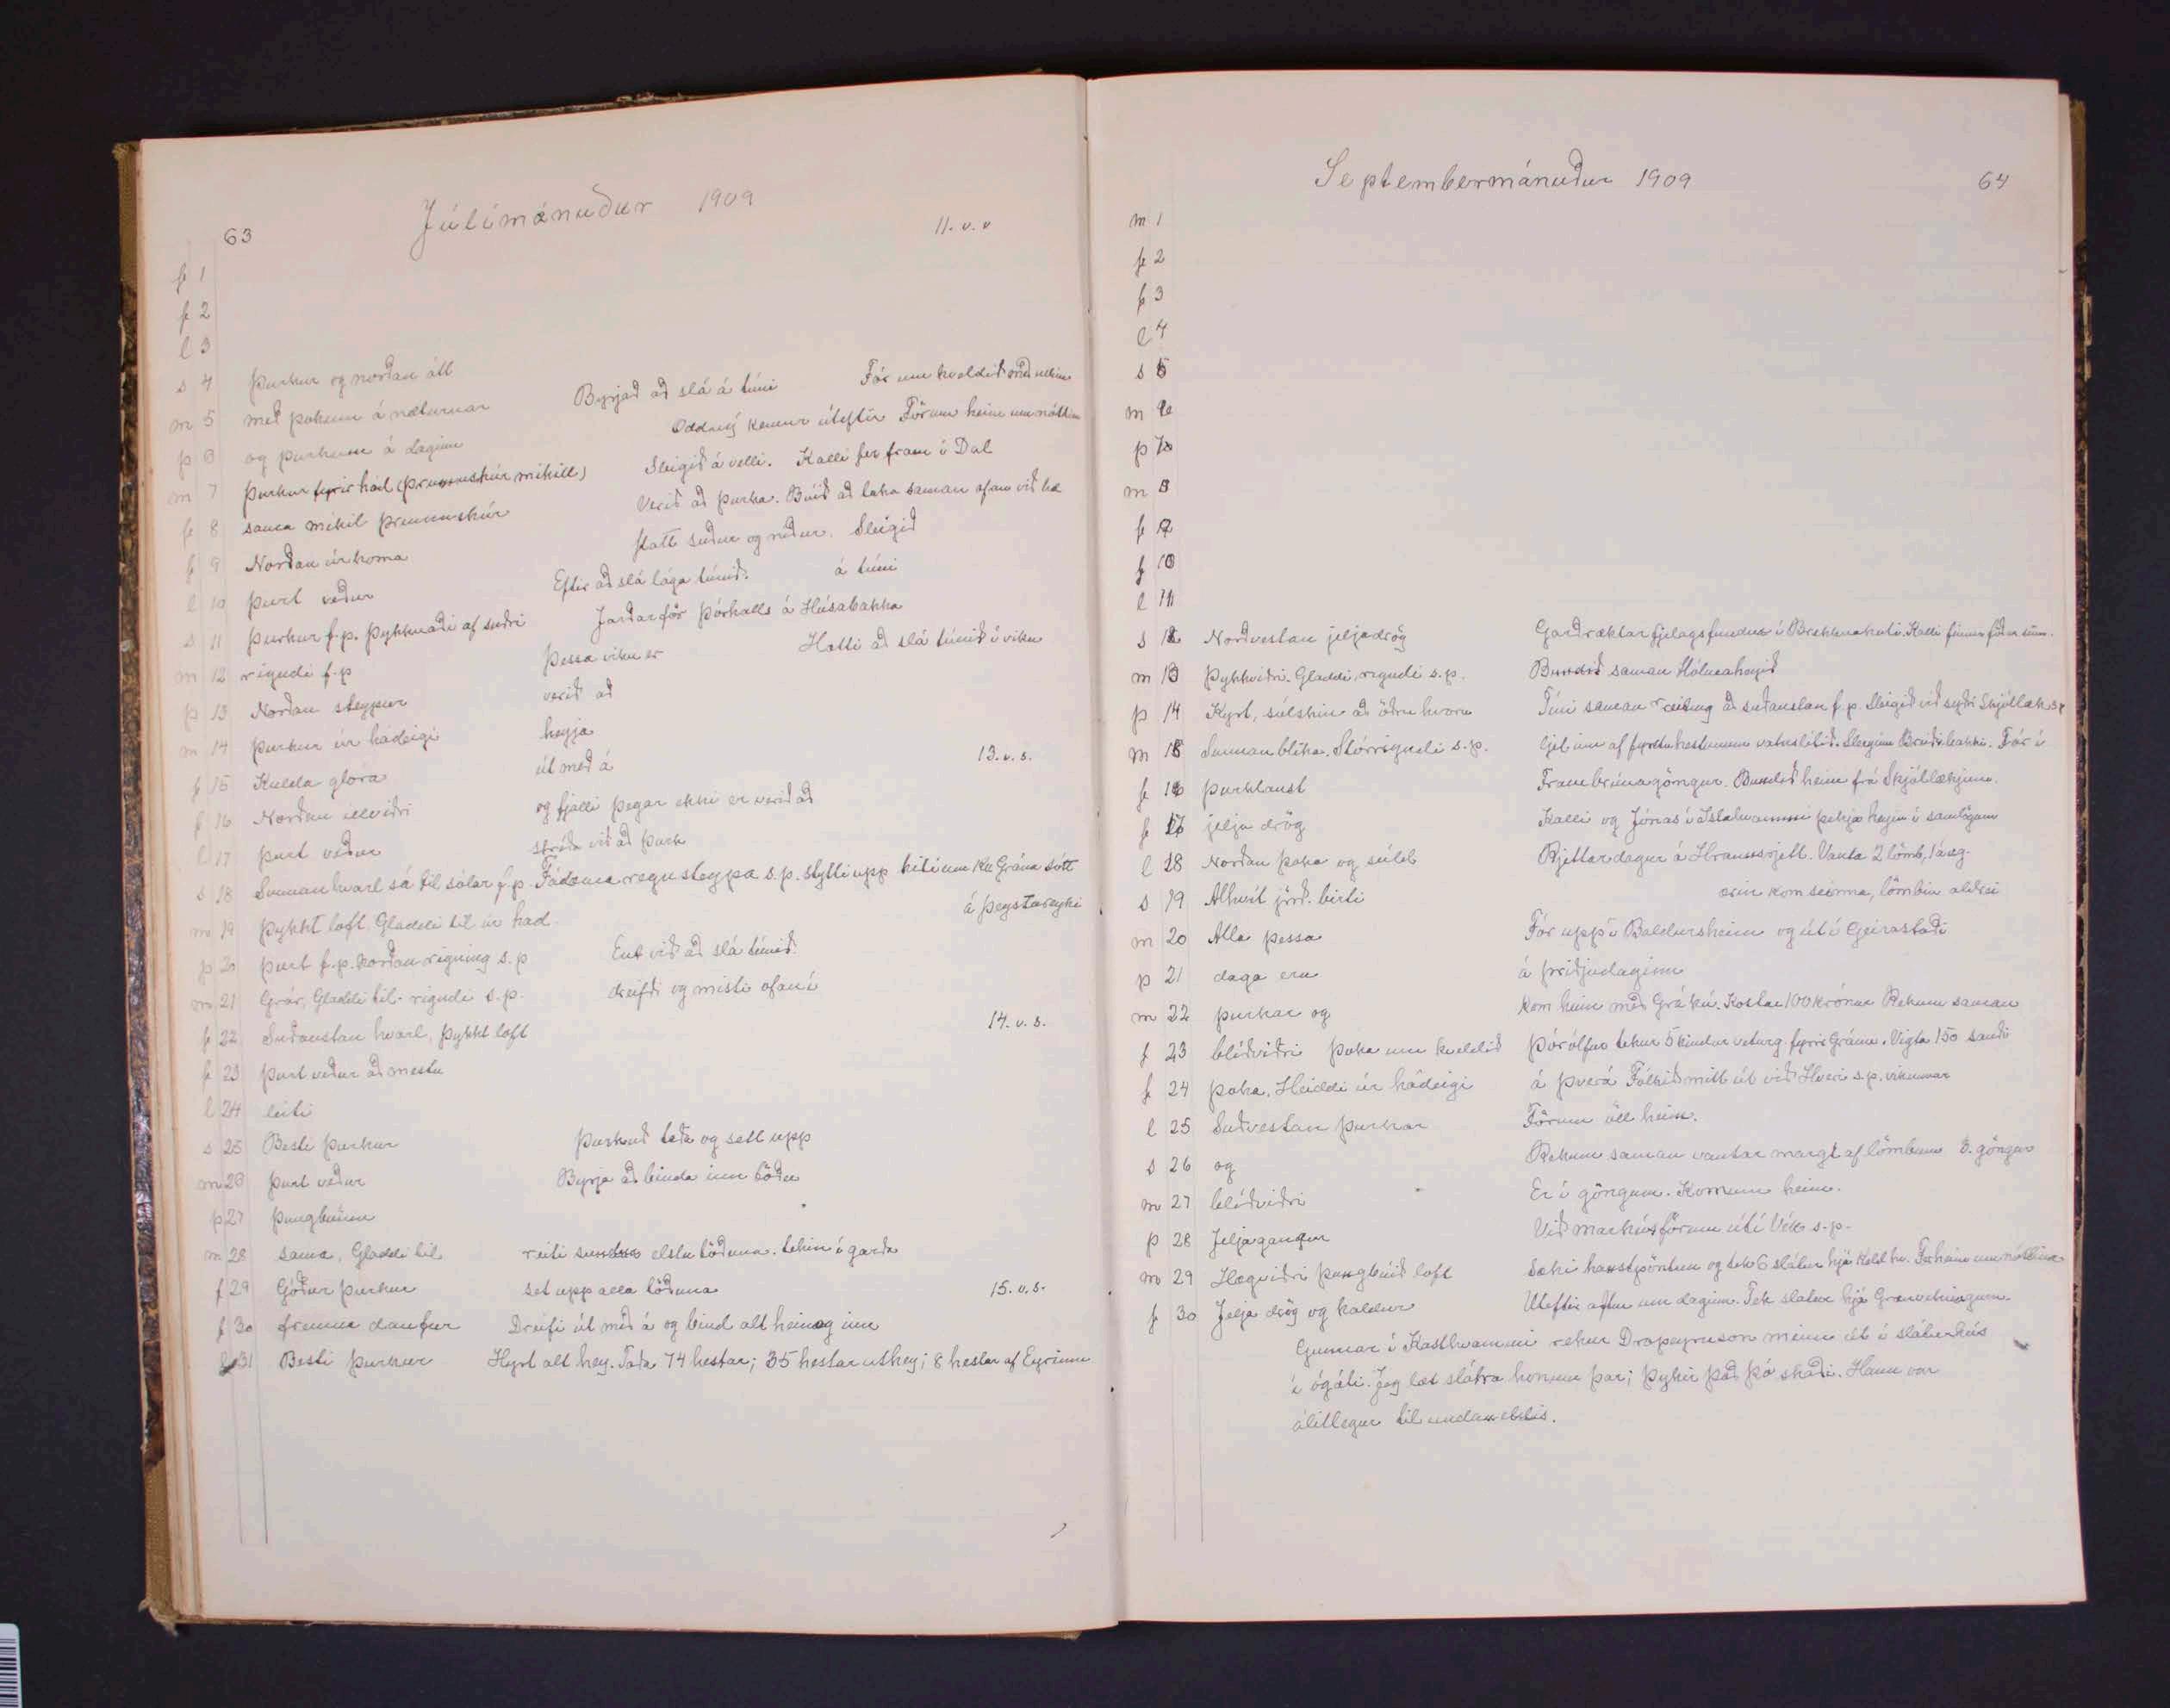 63
Júlímánuður 1909
11. v. v
f 1
f 2
l 3
s 4 Þurkur og norðan átt
m 5 með þokum á næturnar Byrjað að slá á túni Fór um kveldið
þ 6 og þurkum á daginn Oddný kemur úteftir Förum heim um nóttina
m 7 Þurkur fyrir hád (þrumuskúr mikill) Sleigið á velli. Kalli fer fram í Dal
f 8 sama mikil þrumuskúr Verið að þurka. Búið að taka saman ofan við bæ
f 9 Norðan úrkoma flatt suður og niður. Sleigið
l 10 Þurt veður Eftir að slá lága túnið. á túni
s 11 Þurkur f.p. Þykknaði af suðri Jarðarför Þórhalls á Húsabakka
m 12 rigndi f.p Þessa viku er Hætti að slá túnið í viku
þ 13 Norðan steypur verið að
m 14 Þurkur úr hádeigi heyja
f 15 Kulda glóra út með á 13. v. s.
f 16 Norðan illviðri og fjalli þegar ekki er verið að
l 17 Þurt veður stríða við að þurk
s 18 Sunnan hvarl sá til sólar f.p. Fádæma regn steypa s.p. stytti upp Grána sótt
m 19 Þykkt loft. Gladdi til úr hád á Þeystareyki
þ 20 Þurt f.p. norðan rigning s.p Eut við að slá túnið.
m 21 Grár, Gladdi til. rigndi s.p. dreifði og misti ofaní
f 22 Suðaustan hvarl, Þykkt loft 14. v. s.
f 23 Þurt veður að mestu
l 24 leiti
s 25 Besti Þurkur Þurkuð taða og sett upp
m 26 Þurt veður Byrja að binda inn töðu
þ 27 Þungbúinn
m 28 sama, Gladdi til reiti elstu töðuna. tekin í garða
f 29 Góður Þurkur set upp alla töðuna 15. v. s.
f 30 fremur daufur Dreifi út með á og bind alt heim og inn
l 31 Besti Þurkur Hyrt alt hey. Taða 74 hestar; 35 hestar úthey; 8 hestar af Eyrinni
Septembermánuður 1909
64
m 1
f 2
f 3
l 4
s 5
m 6
þ 7
m 8
f 9
f 10
l 11
s 12 Norðvestan jeljadrög Garðræktarfjelagsfundur í Brekknakoti. Kalli
m 13 Þykkviðri. Gladdi, rigndi s.p. Bundið saman Hólmaheyið
þ 14 Kyrt, sólskin að öðru hvoru Tíni saman reiting að suðaustan f.p. Sleigið við syðri Skjóllæk s.p
m 15 Sunnan blika. Stórrigndi s.p. Sleginn Breiðibakki. Fór í
f 16 Þurklaust Frambrúnagöngur. Bundið heim frá Skjóllækjum.
f 17 jelja drög Kalli og Jónas í þekja heyin í samlögum
l 18 Norðan þoka og súld Rjettardagur á Hraunsrjett. Vanta 2 lömb, 1 ásg.
s 19 Alhvít jörð. birti ærin kom seinna, lömbin aldrei
m 20 Alla þessa Fór upp í Baldursheim og út í Geirastaði
þ 21 daga eru á þriðjudaginn
m 22 þurkar og Kom heim með Grákú. Kostar 100 krónur Rekum saman
f 23 blíðviðri Þoka um kveldið Þórólfur tekur 5 kindur veturg. fyrir Gránu. Vigta 150 sauði
f 24 þoka. Heiddi úr hádeigi á Þverá Fólkið mitt út við Hveri s.p. vikunnar
l 25 Suðvestan þurkar Förum öll heim.
s 26 og Rekum saman vantar margt af lömbum 3. göngur
m 27 blíðviðri Er í göngum. Komum heim.
þ 28 Jeljagangur Við Markús förum út í Vík s.p.
m 29 Hægviðri þungbúið loft Sæki haustpöntun og tek 6 slátur hjá Fer heim um nóttina
f 30 Jelja drög og kaldur Úteftir aftur um daginn. Tek slátur hjá
Gunnar í Kasthvammi rekur Dropeyruson minn út í sláturhús
í ógáti. Jeg læt slátra honum þar; þykir það þó skaði. Hann var
álitlegur til undaneldis.